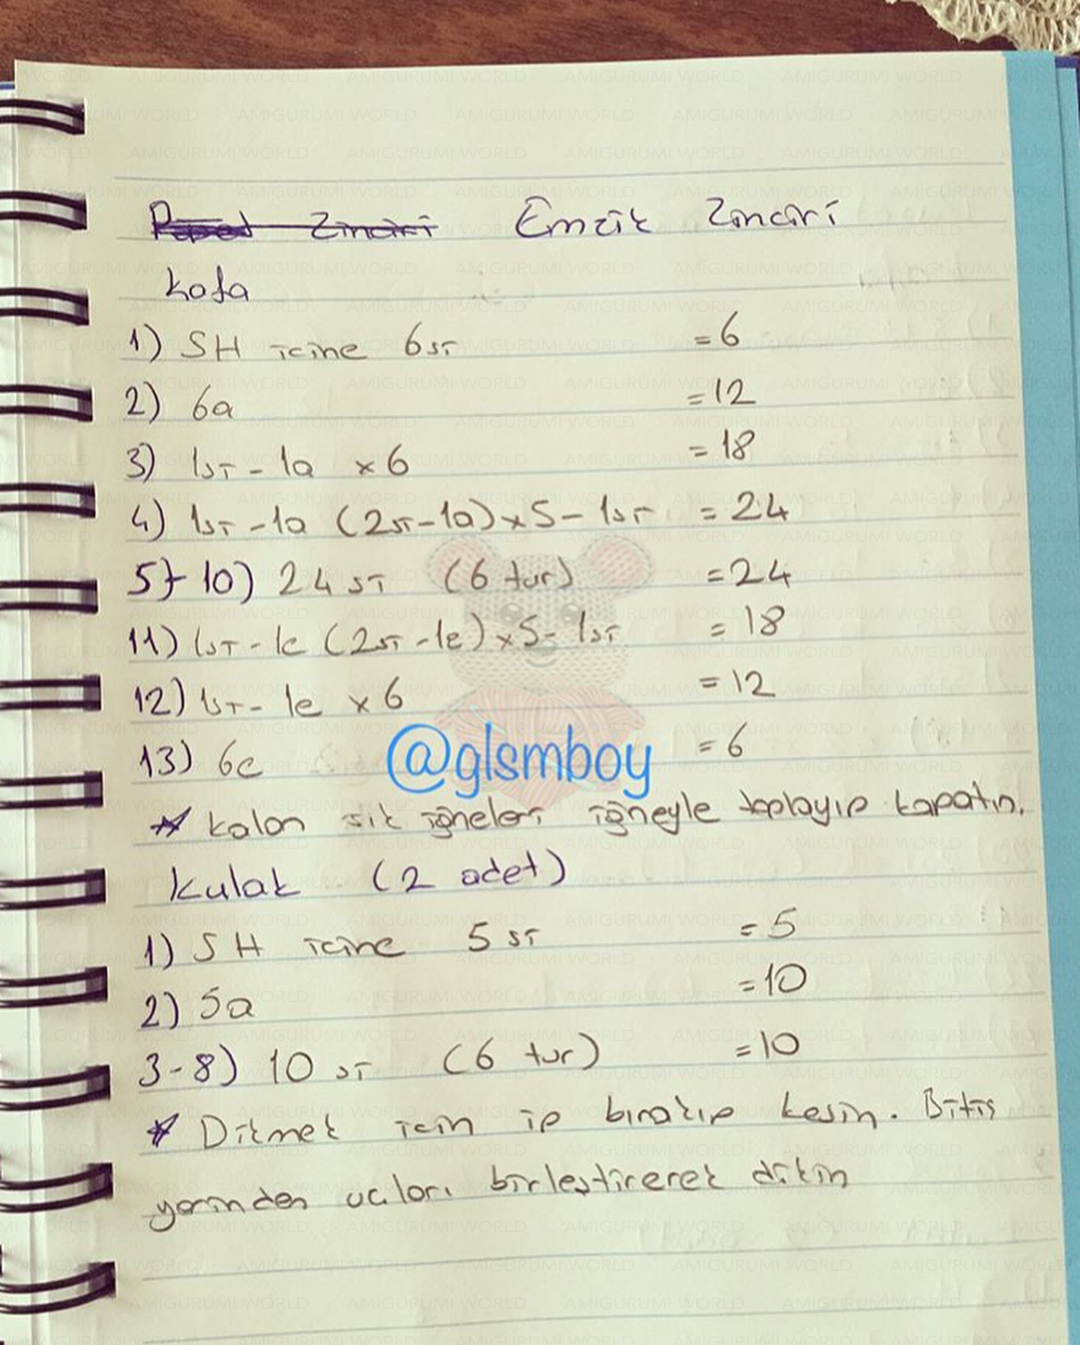 Emzik Zinciri
Kafa
1) SH içine 6sı = 6
2) 6a = 12
3) 1sı - 1a x 6 = 18
4) 1sı - 1a (2sı-1a)x5 - 1sı = 24
5)-10) 24 sı (6 tur) = 24
11) 1sı - 1e (2sı-1e)x5- 1sı = 18
12) 1sı- 1e x 6 = 12
13) 6e = 6
@glsmboy
* Kalan sık iğneleri iğneyle toplayıp kapatın.
Kulak (2 adet)
1) SH içine 5 sı = 5
2) 5a = 10
3-8) 10 sı (6 tur) = 10
* Dikmek için ip bırakıp kesin. Bitiş
yerinden uçları birleştirerek dikin
AMIGURUMI WORLD